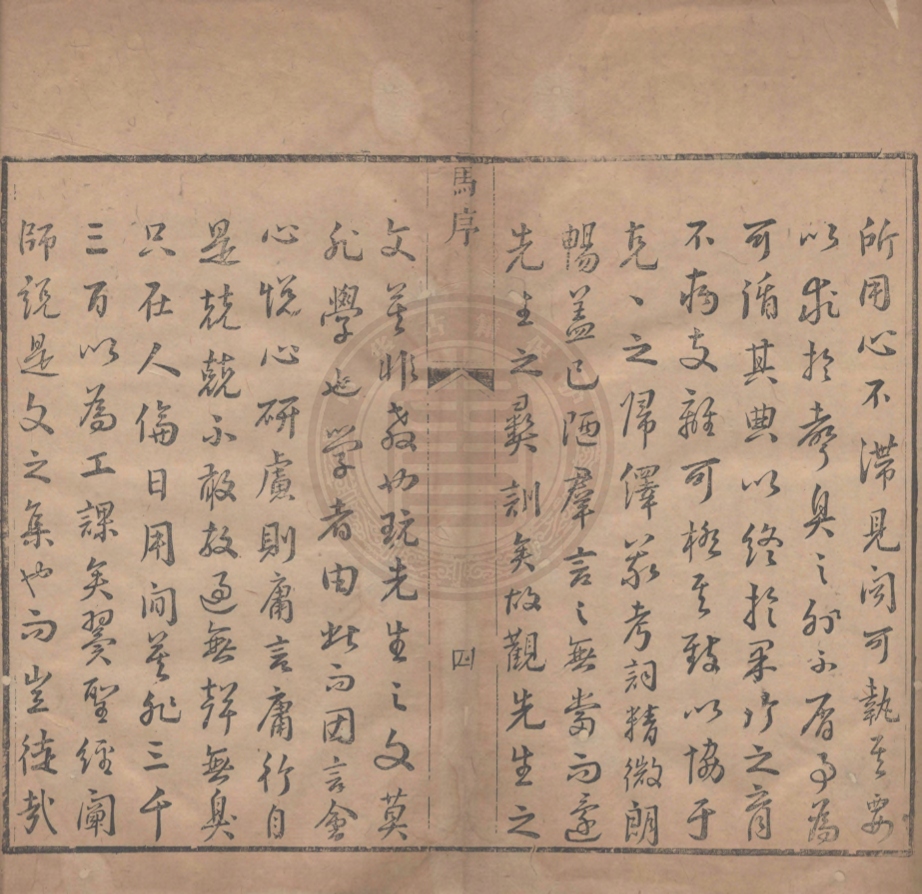 所用心不滯見聞可執其要
以求於聲臭之外不屑事為
可循其典以終於果行之育
不病支離可極其致以協于
克之歸繹義考詞精微朗
暢蓋已陋羣言之無當而遂
先生之彝訓矣故觀先生之
馬序
四
文莫非教也玩先生之文莫
非學也學者由此而因言會
心悅心研慮則庸言庸行自
是兢兢不敢放過無聲無臭
只在人倫日用間莫非三千
三百以為工課矣翼聖經闡
師說是文之集也而豈徒哉